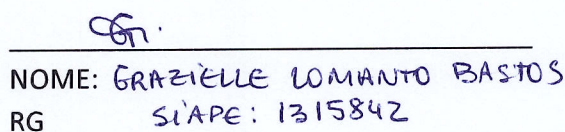 NOME: GRAZIELLE LOMANTO BASTOS
RG SIAPE: 1315842